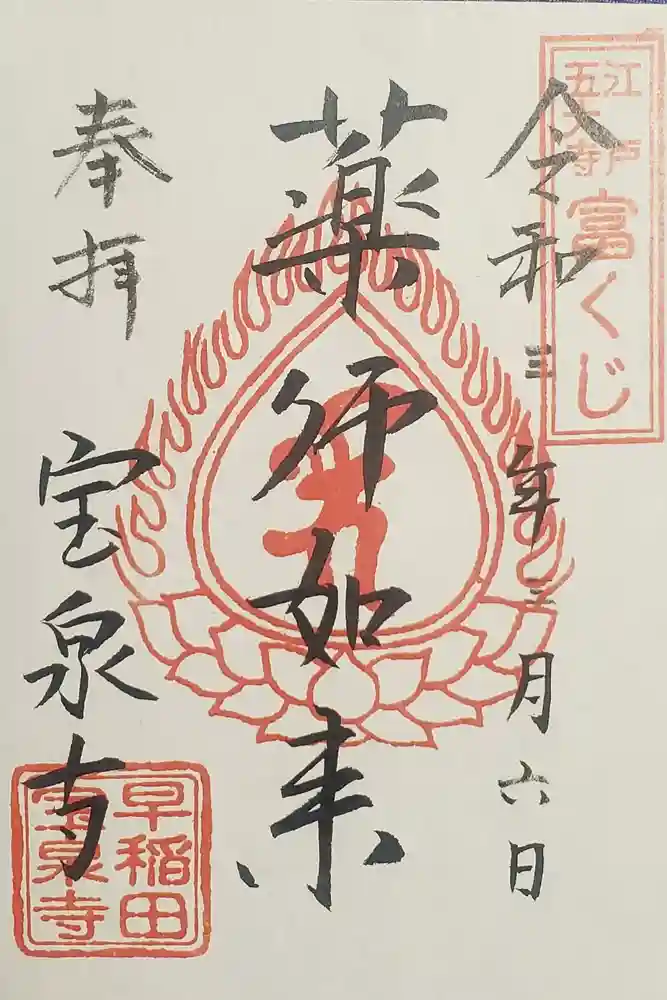 江戸
五大寺
富くじ
令和三年三月六日
薬師如来
奉拝
宝泉寺
早稲田
宝泉寺